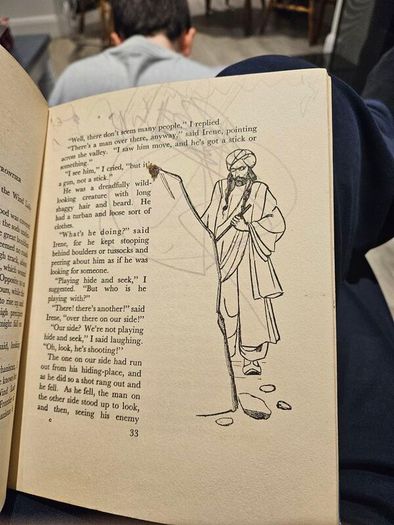 "Well, there don't seem many people," I replied
"There's a man over there, anyway," said Irene, pointing
across the valley. "I saw him move, and he's got a stick or
something."
"I see him," I cried, "but it's
a gun, not a stick."
He was a dreadfully wild-
looking creature with long
shaggy hair and beard. He
had a turban and loose sort of
clothes.
"What's he doing?" said
Irene, for he kept stooping
behind boulders or tussocks and
peering about him as if he was
looking for someone.
"Playing hide and seek," I
suggested. "But who is he
playing with?"
"There! there's another!" said
Irene, "over there on our side!"
"Our side? We're not playing
hide and seek," I said laughing.
"Oh, look, he's shooting!"
The one on our side had run
out from his hiding-place, and
as he did so a shot rang out and
he fell. As he fell, the man on
the other side stood up to look,
and then, seeing his enemy
c
33